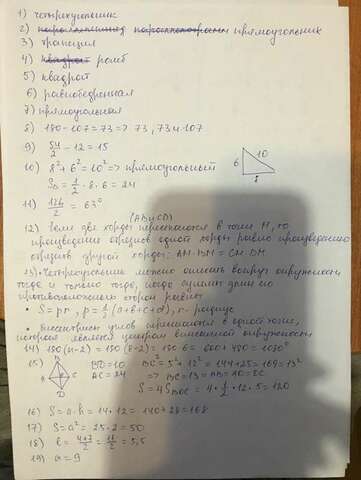 1) четырехугольник
2) прямоугольник
3) трапеция
4) ромб
5) квадрат
6) равнобедренная
7) прямоугольная
8) 180-107=73 => 73, 73 и 107
9) 54/2 - 12 = 15
10) 8²+6²=10² => прямоугольный
S△ = 1/2 · 8 · 6 = 24
6 10 8
11) 126/2 = 63°
(AB и CD)
12) Если две хорды пересекаются в точке M, то
произведение отрезков одной хорды равно произведению
отрезков другой хорды: AM·BM = CM·DM
13) Четырехугольник можно описать вокруг окружности
тогда и только тогда, когда суммы длин его
противоположных сторон равны
• S = pr, p = 1/2 (a+b+c+d), r - радиус
• Биссектрисы углов пересекаются в одной точке,
которая является центром вписанной окружности
14) 180(n-2) = 180(8-2) = 180·6 = 600+480 = 1080°
15) BD=10 BC² = 5²+12² = 144+25=169=13²
AC=24 => BC=13=AB=AD=DC
D S = 4S = 4·1/2·12·5=120
16) S=a·h = 14·12 = 140+28=168
17) S=a² = 25·2=50
18) l = 4+7/2 = 11/2 = 5,5
19) a = 9